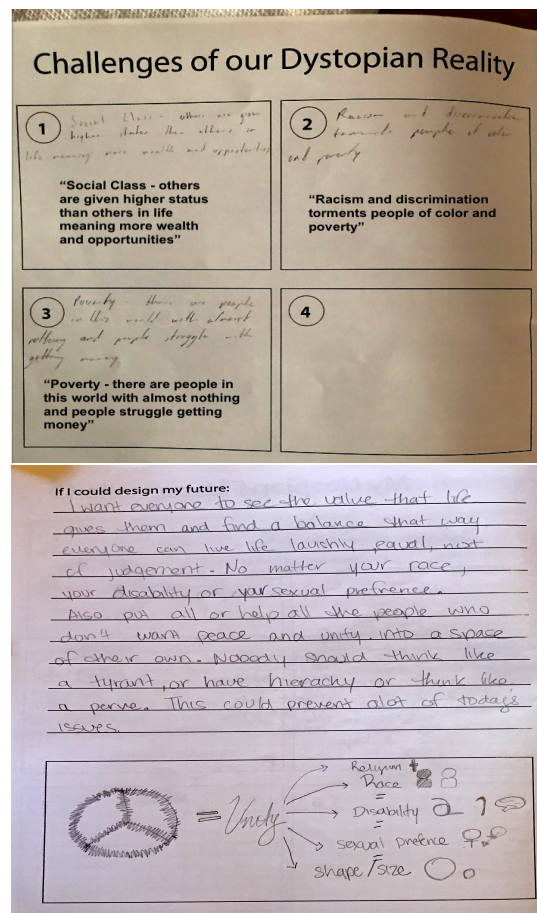 Challenges of our Dystopian Reality
1
Social Class - others are given
higher status than others in
life meaning more wealth and opportunities
"Social Class - others
are given higher status
than others in life
meaning more wealth
and opportunities"
2
Racism and discrimination
towards people of color
and poverty
"Racism and discrimination
torments people of color and
poverty"
3
Poverty - there are people
in this world with almost
nothing and people struggle with
getting money
"Poverty - there are people in
this world with almost nothing
and people struggle getting
money"
4
If I could design my future:
I want everyone to see the value that life
gives them and find a balance that way
everyone can live life lavishly, equal, not
of judgement. No matter your race,
your disability or your sexual prefrence.
Also put all or help all the people who
don't want peace and unity into a space
of their own. Nobody should think like
a tyrant, or have hierachy or think like
a perve. This could prevent alot of todays
issues.
= Unity
Religion
Race
=
Disability
=
sexual prefence
=
shape/size